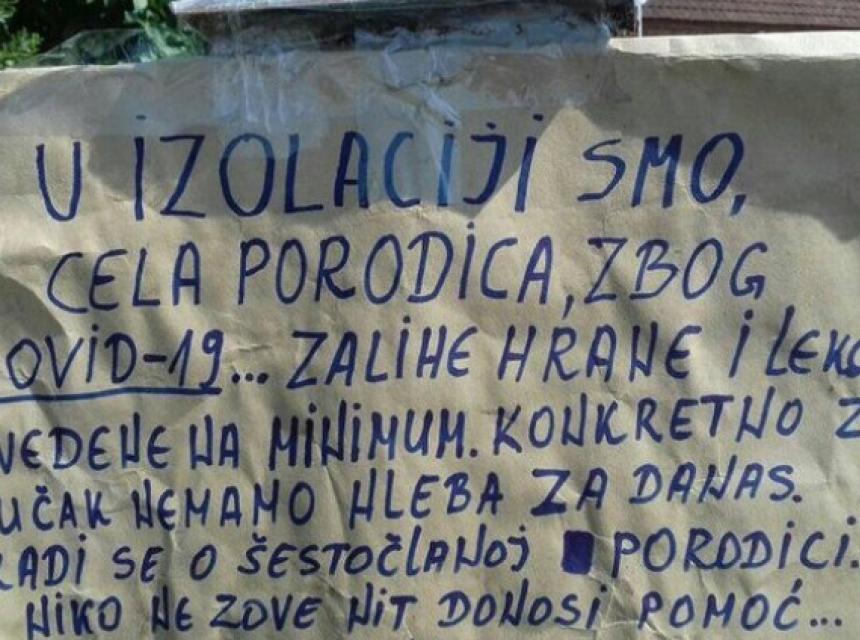 U IZOLACIJI SMO,
CELA PORODICA, ZBOG
OVID-19... ZALIHE HRANE I LEKO
VEDENE NA MINIMUM. KONKRETNO Z
UČAK NEMAMO HLEBA ZA DANAS.
RADI SE O ŠESTOČLANOJ PORODICI.
NIKO NE ZOVE NIT DONOSI POMOĆ...